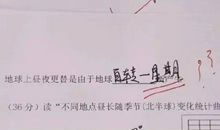 地球上昼夜更替是由于地球自转一星期??
(36分)读“不同地点昼长随季节(北半球)变化统计曲